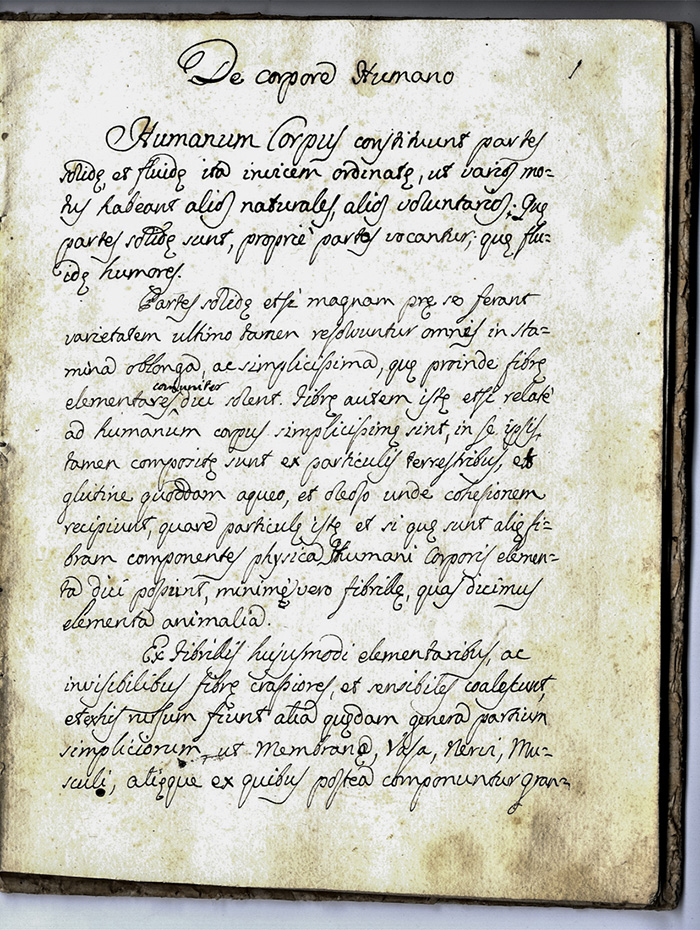 De corpore Humano
1
Humanum Corpus constituunt partes
solidę, et fluidę ita invicem ordinatę, ut varios mo=
tus habeant alios naturales, alios voluntarios. Quę
partes solidę sunt, propriè partes vocantur; quę flu=
idę humores.
Partes solidę etsi magnam prę se ferant
varietatem ultimo tamen resolvuntur omnes in sta=
mina oblonga, ac simplicissima, quę proinde fibrę
communiter
elementares dici solent. Fibrę autem istę etsi relatè
ad humanum corpus simplicissimę sint, in se ipsis
tamen compositę sunt ex particulis terrestribus, et
glutine quoddam aqueo, et oleoso unde cohesionem
recipiunt, quare particulę istę et si quę sunt alię fi=
bram componentes physica humani Corporis elemen=
ta dici possunt, minimè vero fibrillę, quas dicimus
elementa animalia.
Ex Fibrillis hujusmodi elementaribus, ac
invisibilibus fibrę crassiores, et sensibiles coalescunt,
et ex his rursum fiunt alia quędam genera partium
simpliciorum, ut Membranę, Vasa, Nervi, Mu=
sculi, alięque ex quibus postea componuntur gran=